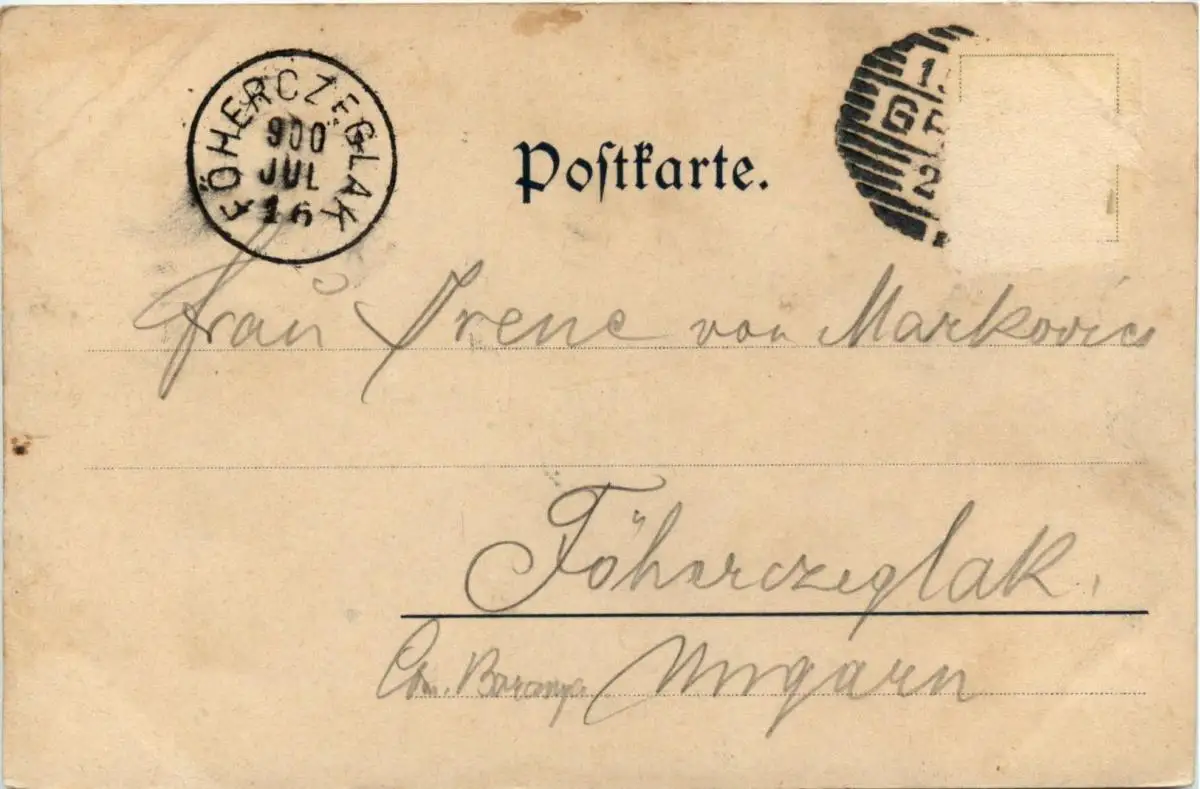 FŐHERCZEGLAK
900
JUL
16
Postkarte.
1.
2
Frau Irene von Markovics
Főherczeglak.
Com. Baranya Ungarn